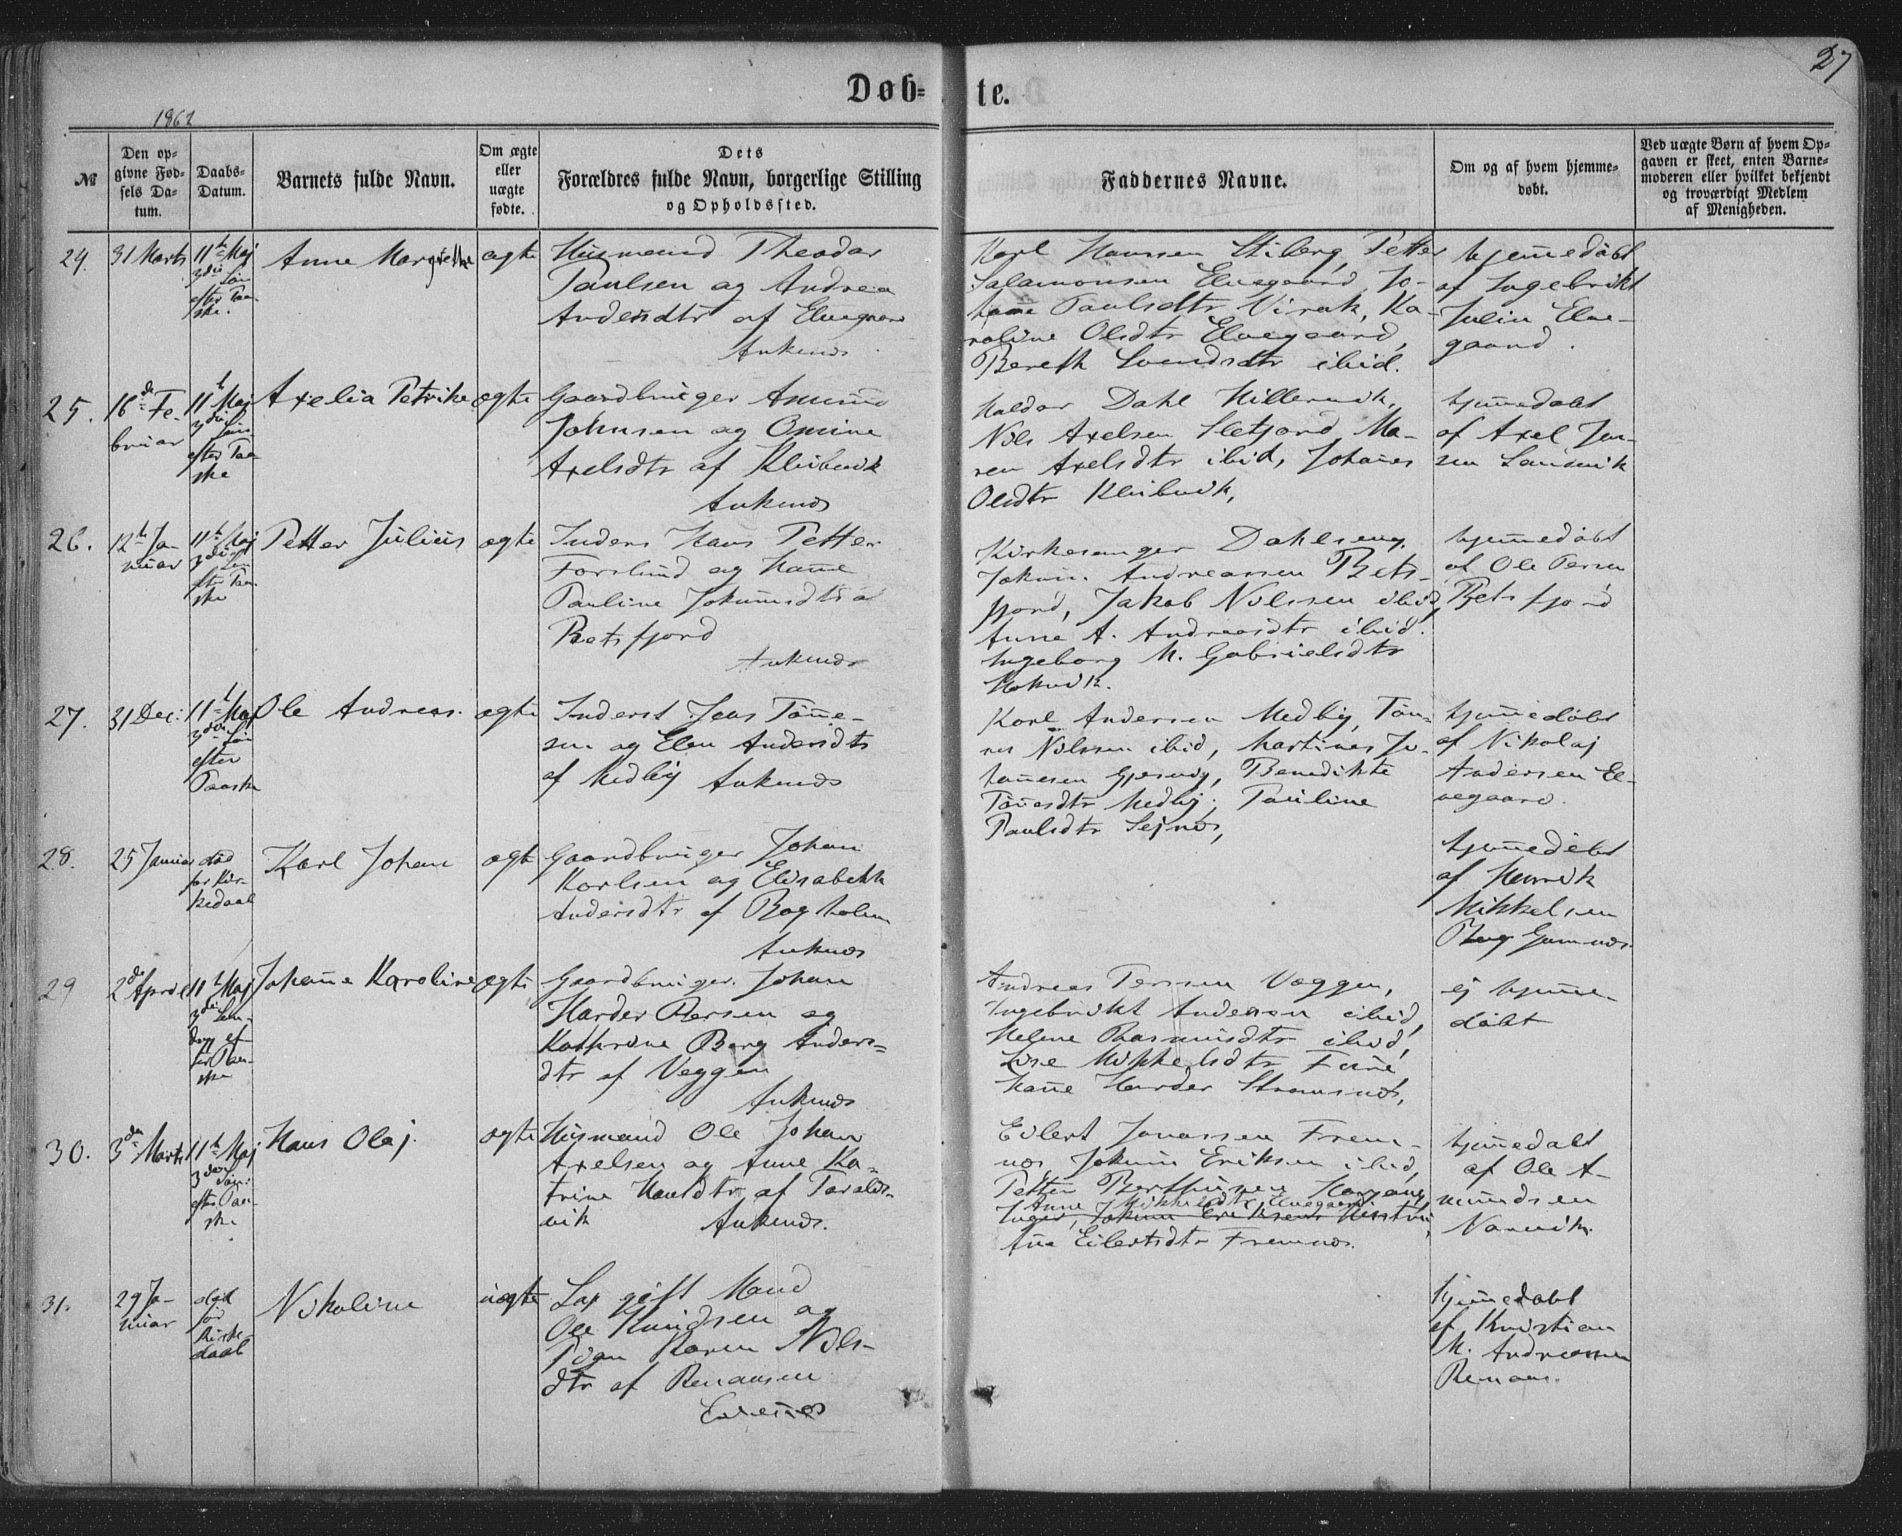 27
Døb=
te.
1862
№
Den op-
givne Fød-
sels Da-
tum.
Daabs-
Datum.
Barnets fulde Navn.
Om ægte
eller
uægte
fødte.
Dets
Forældres fulde Navn, borgerlige Stilling
og Opholdssted.
Faddernes Navne.
Om og af hvem hjemme-
døbt.
Ved uægte Børn af hvem Op-
gaven er skeet, enten Barne-
moderen eller hvilket bekjendt
og troværdigt Medlem
af Menigheden.
24.
31 Marts
11te Maj
3die Søn
efter Paa-
ske.
Anne Margrethe
ægte
Husmand Theodor
Paulsen og Andrea
Andersdtr af Elvegaard
Ankenes
Karl Hanssen Stiberg, Petter
Salamonsen Elvegaard, Jo-
hanne Paulsdtr Virak, Ka-
roline Olsdtr Elvegaard,
Bereth Svendsdtr ibid.
hjemmedøbt
af Ingebrikt
Julin Elve-
gaard.
25.
16de Fe-
bruar
11te Maj
3die Søn
efter Paa-
ske
Axelia Petrike
ægte
Gaardbruger Amund
Johnsen og Omine
Axelsdtr af Kleibvik
Ankenes
Haldor Dahl Hillervik,
Nils Axelsen Sletjord, Ma-
ren Axelsdtr ibid, Johanes
Olsdtr Kleibvik,
hjemmedøbt
af Axel Jen-
sen Sandvik
26.
12te Ja-
nuar
11te Maj
3die Søn
efter Paa-
ske
Petter Julius
ægte
Inders Hans Petter
Forslund og Hanne
Pauline Jokumsdtr af
Betsfjord
Ankenes
Kirkesanger Dahlseng,
Jokum Andreassen Bets-
fjord, Jakob Nilssen ibid,
Anne A. Andreasdtr ibid.
Ingeborg M. Gabrielsdtr
Hokvik.
hjemmedøbt
af Ole Persen
Betsfjord
27.
31 Dec:
11te Maj
3die Søn
efter
Paaske
Ole Andreas.
ægte
Inderst Jens Tønne-
sen og Elen Andersdtr
af Medby Ankenes
Karl Andersen Medby, Tøn-
nes Nilssen ibid, Martines Jo-
hannesen Gjesvig, Benedikte
Tønnesdtr Medby, Pauline
Paulsdtr Sejnes,
hjemmedøbt
af Nikolaj
Andersen El-
vegaard.
28.
25 Januar
død
før Kir-
kedaab
Karl Johan
ægte
Gaardbruger Johan
Karlsen og Elisabeth
Andersdtr af Bogholm
Ankenes
hjemmedøbt
af Henrik
Mikkelsen
29
2de April
11te Maj
3die Søn-
dag ef-
ter Paa-
ske
Johanne Karoline
ægte
Gaardbruger Johan
Harder Persen og
Kathrine Berg Anders-
dtr af Veggen
Ankenes
Andreas Persen Veggen,
Ingebrikt Anderson ibid,
Helene Rasmusdtr ibid,
Lise Mikkelsdtr
Hanne Harder Strømsnes,
ej hjemme-
døbt
30.
3die Marts
11te Maj
3die Søn:
efter Paa-
ske
Hans Olaj.
ægte
Husmand Ole Johan
Axelsen og Anne Ka-
trine Hansdtr af Taralds-
vik Ankenes.
Eilert Jonassen Frem-
nes, Jokum Eriksen ibid,
Petter
Anne Mikkelsdtr Elvegaard
Inger, Jokum Eriksens Hustru,
Ane Eilertsdtr Fremnes.
hjemmedøbt
af Ole A-
mundsen
Narvik.
31.
29 Ja-
nuar
død
før
Kirke-
daab
Nikoline
uægte
Lap gift Mand
Ole Knudsen og
Pigen Karen Nils-
dtr af Renaasen
Evenes
hjemmedøbt
af Kristian
M. Andreassen
Renaas.